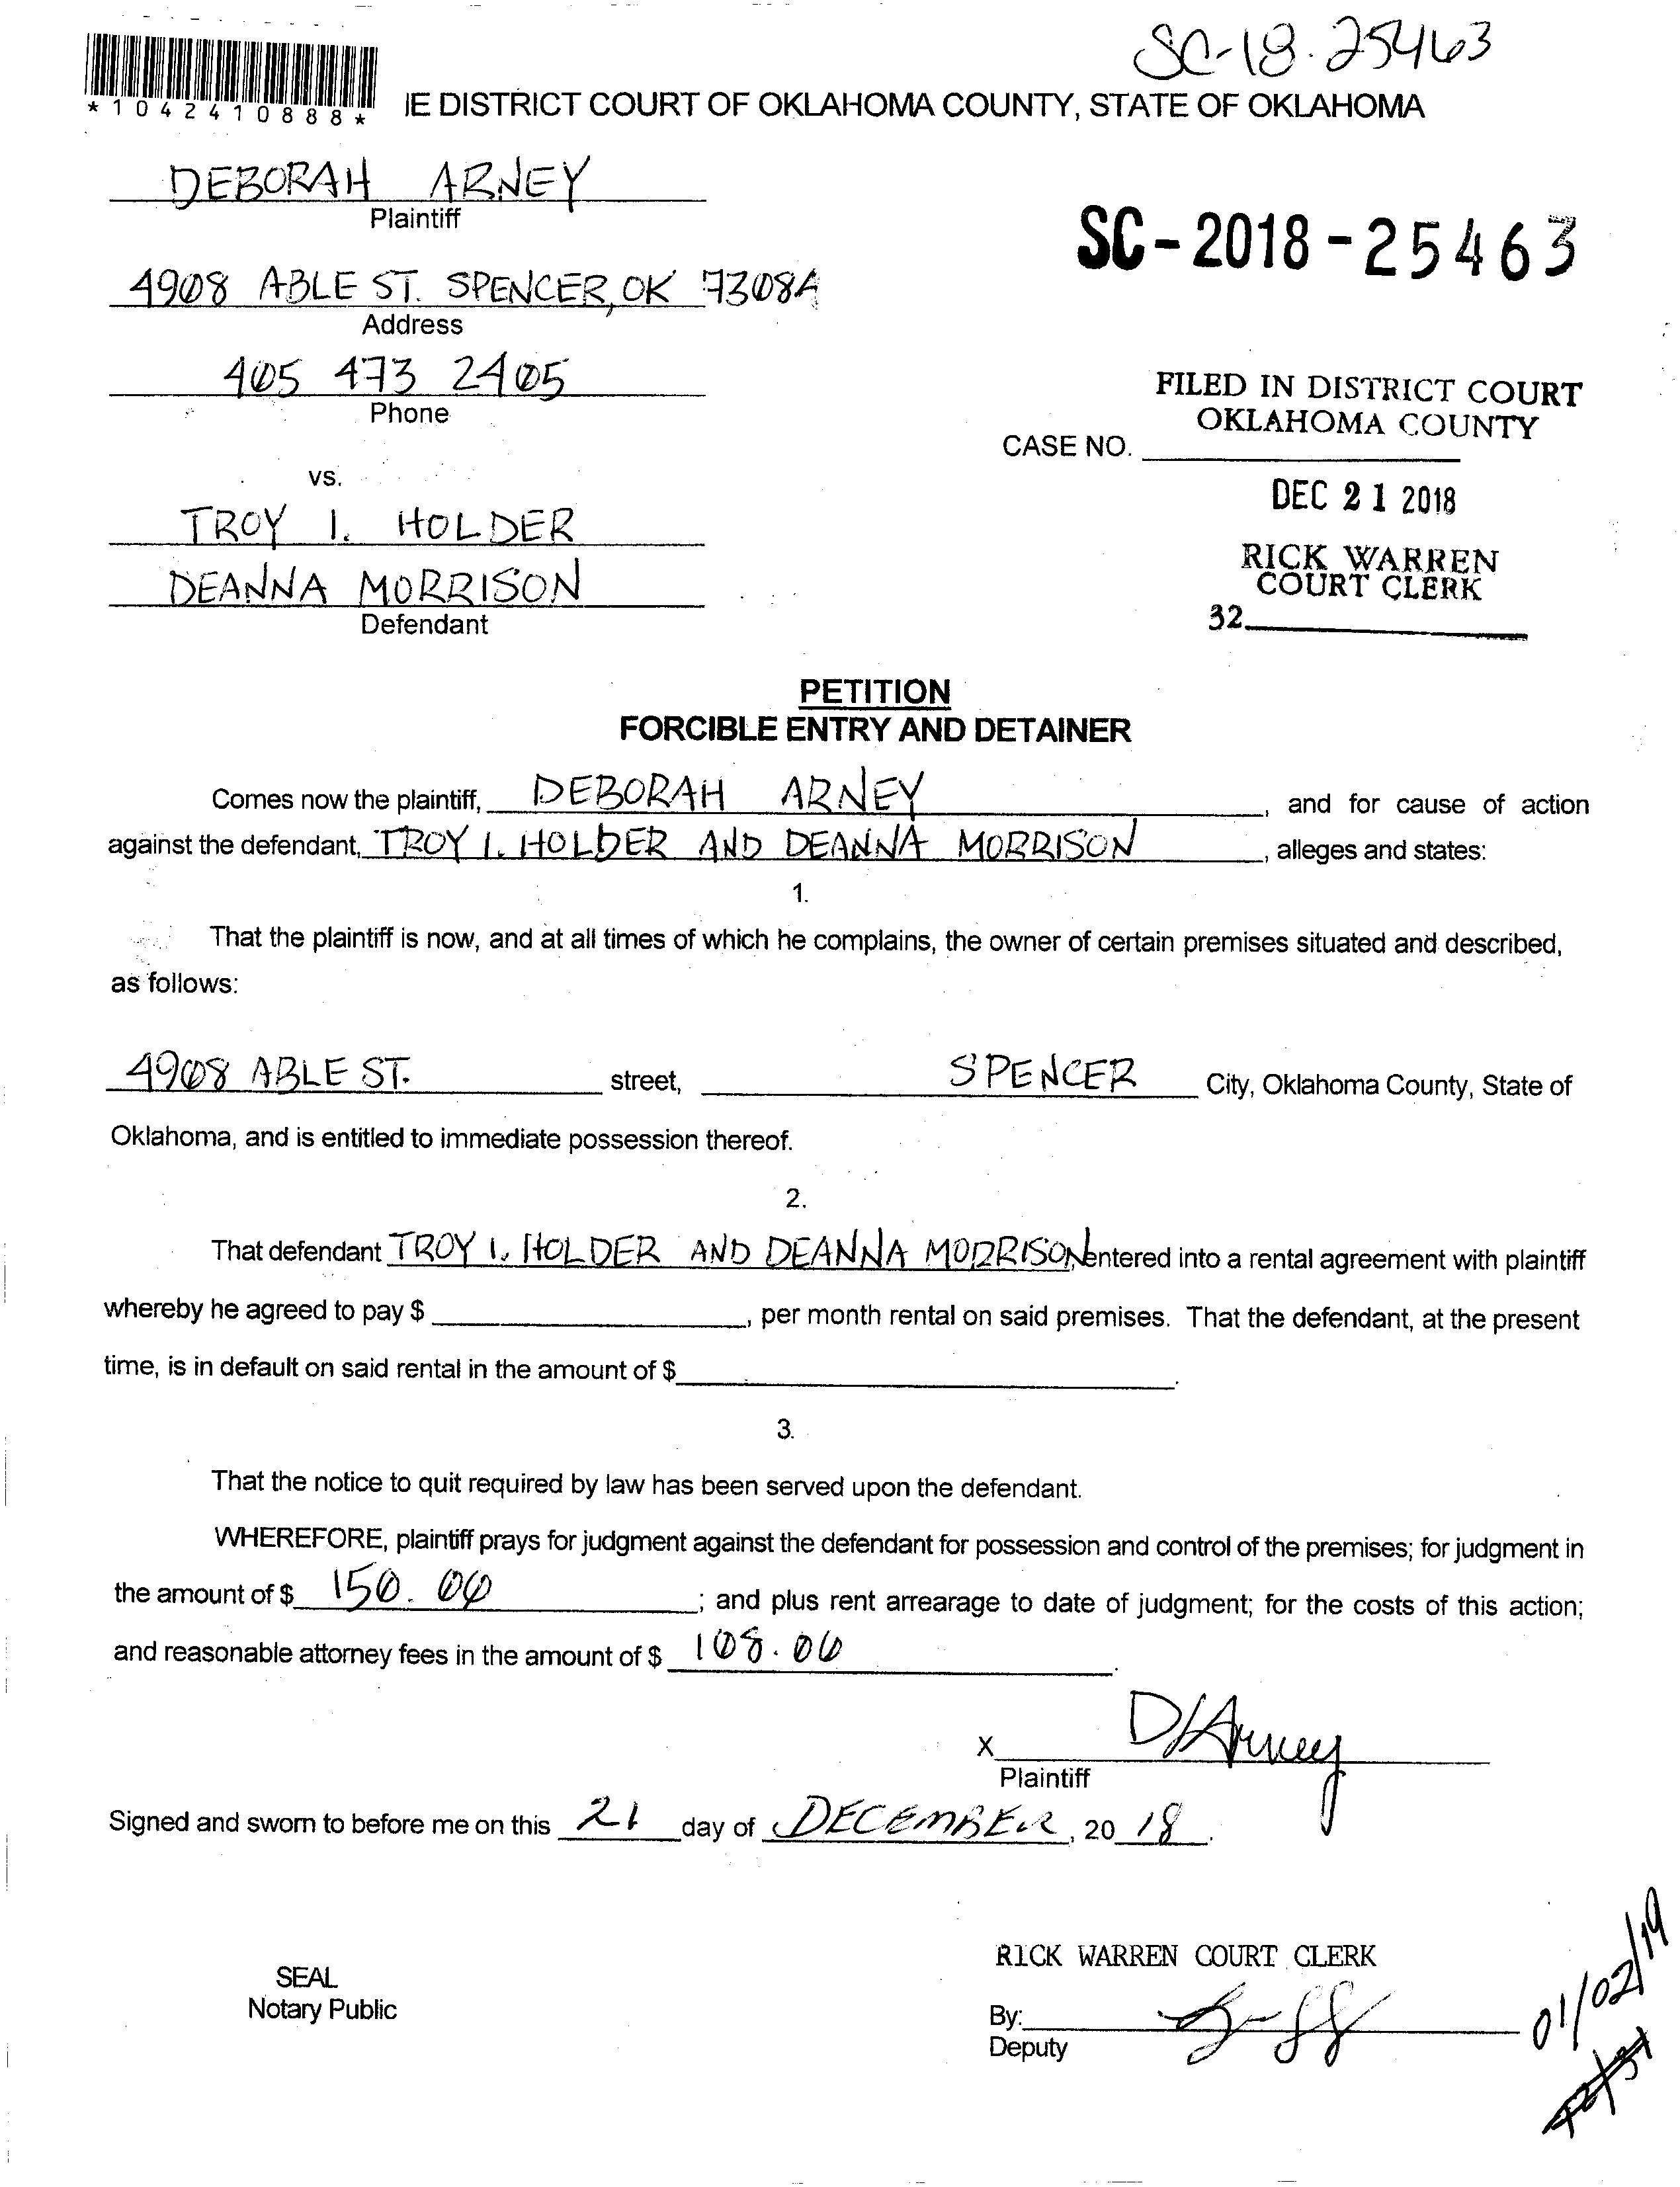 SC-18-25463
*1042410888*
IE DISTRICT COURT OF OKLAHOMA COUNTY, STATE OF OKLAHOMA
DEBORAH ARNEY
Plaintiff
SC-2018-25463
4908 ABLE ST. SPENCER, OK 73084
Address
405 473 2405
Phone
FILED IN DISTRICT COURT
OKLAHOMA COUNTY
CASE NO.
vs.
DEC 21 2018
TROY I. HOLDER
DEANNA MORRISON
Defendant
RICK WARREN
COURT CLERK
32
PETITION
FORCIBLE ENTRY AND DETAINER
Comes now the plaintiff, DEBORAH ARNEY, and for cause of action
against the defendant, TROY I. HOLDER AND DEANNA MORRISON, alleges and states:
1.
That the plaintiff is now, and at all times of which he complains, the owner of certain premises situated and described,
as follows:
4908 ABLE ST. street, SPENCER City, Oklahoma County, State of
Oklahoma, and is entitled to immediate possession thereof.
2.
That defendant TROY I. HOLDER AND DEANNA MORRISON entered into a rental agreement with plaintiff
whereby he agreed to pay $, per month rental on said premises. That the defendant, at the present
time, is in default on said rental in the amount of $.
3.
That the notice to quit required by law has been served upon the defendant.
WHEREFORE, plaintiff prays for judgment against the defendant for possession and control of the premises; for judgment in
the amount of $ 150.00; and plus rent arrearage to date of judgment; for the costs of this action;
and reasonable attorney fees in the amount of $ 108.00.
X D Arney
Plaintiff
Signed and sworn to before me on this 21 day of DECEMBER, 20 18.
RICK WARREN COURT CLERK
SEAL
Notary Public
By:
Deputy
01/02/19